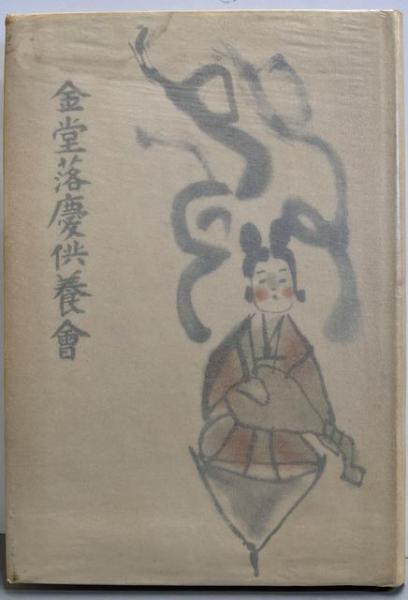 金堂落慶供養會